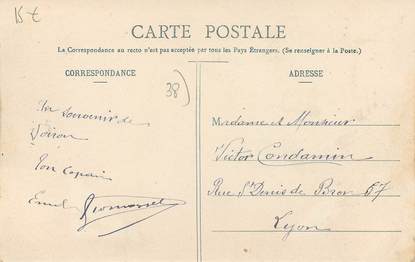 15 €
CARTE POSTALE
La Correspondance au recto n'est pas acceptée par tous les Pays Étrangers. (Se renseigner à la Poste.)
CORRESPONDANCE
ADRESSE
38)
Un souvenir de
Voiron
Ton Copain
Madame et Monsieur
Victor Condamin
Rue St Denis de Bron 67
Lyon